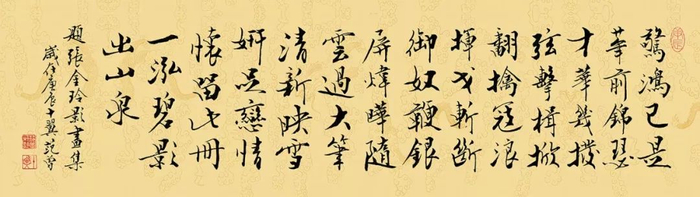 驚鴻已是
華前錦瑟
才華幾撥
弦擊楫掀
翻擒寇浪
揮戈斬斷
御奴鞭銀
屏煒曄隨
雲過大筆
清新映雪
妍足戀情
懷留此冊
一泓碧影
出山泉
題張金玲影畫集
歲在庚辰十翼范曾